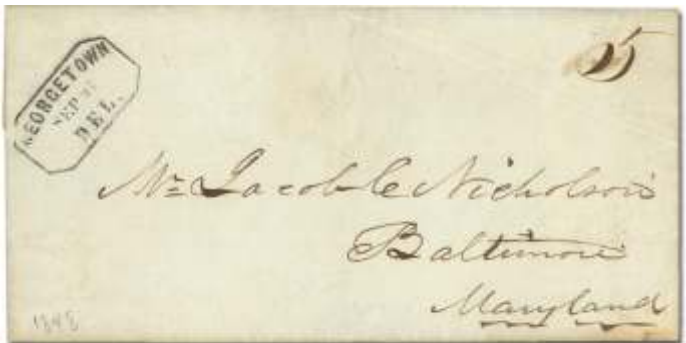 GEORGETOWN
SEP
DEL.
5
Mr Jacob C Nicholson
Baltimore
Maryland
1848